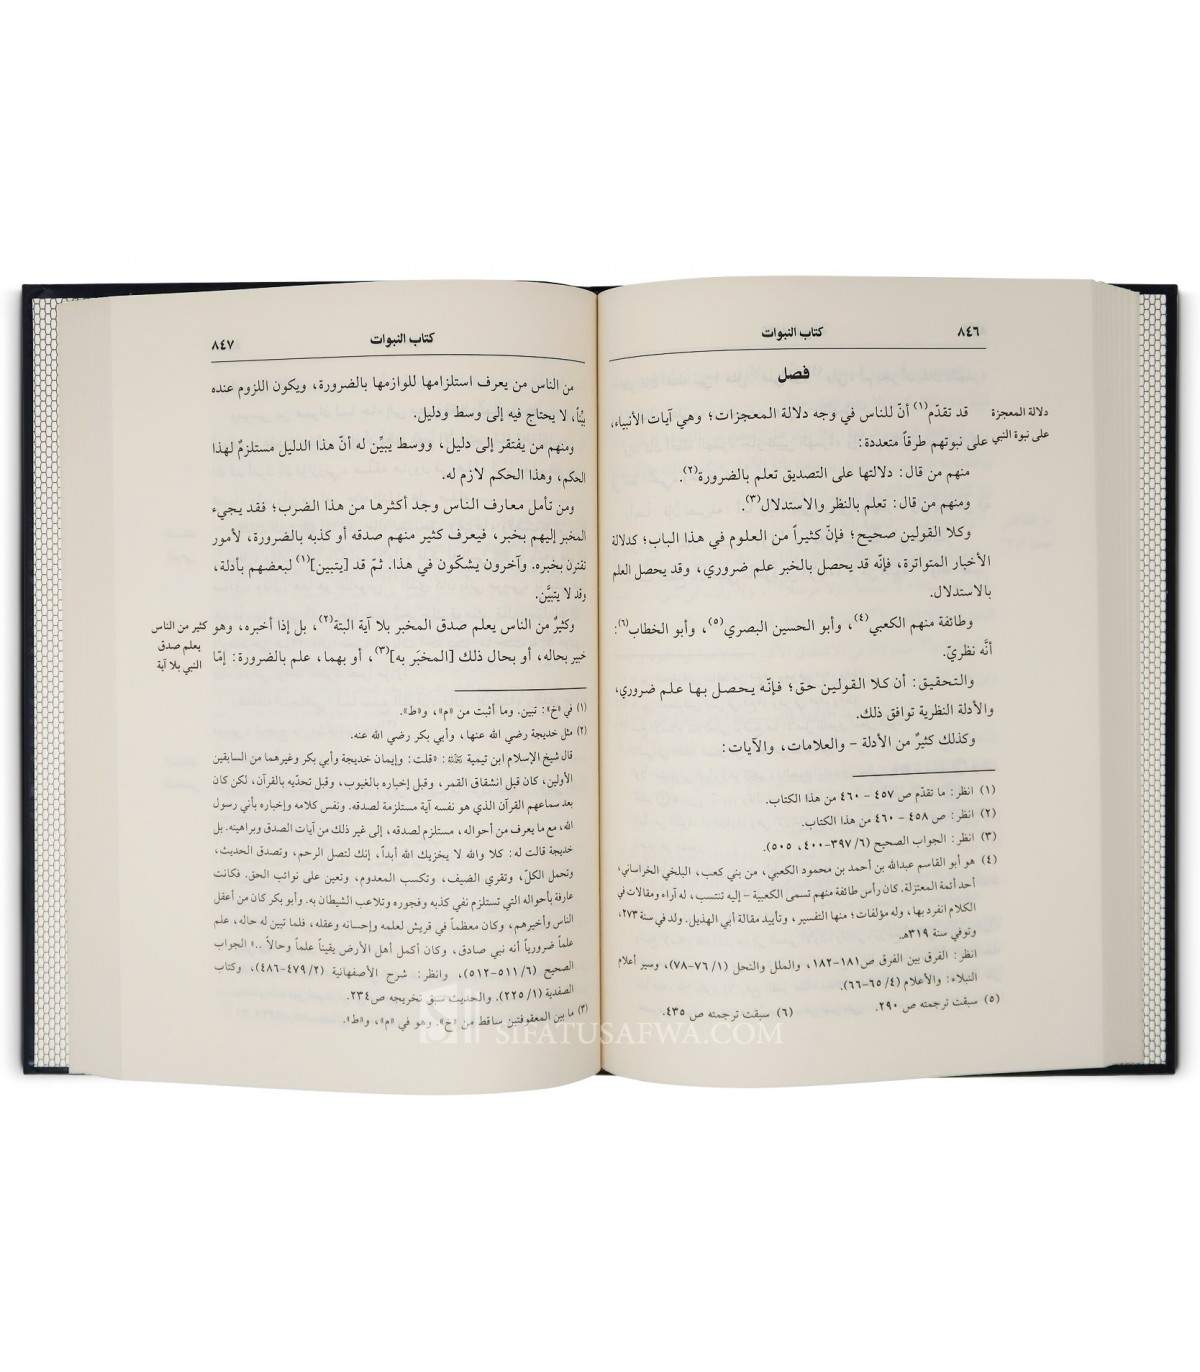 ٨٤٦
كتاب النبوات
فصل
دلالة المعجزة
على نبوة النبي
قد تقدّم(١) أنّ للناس في وجه دلالة المعجزات؛ وهي آيات الأنبياء،
على نبوتهم طرقاً متعددة:
منهم من قال: دلالتها على التصديق تعلم بالضرورة(٢).
ومنهم من قال: تعلم بالنظر والاستدلال(٣).
وكلا القولين صحيح؛ فإنّ كثيراً من العلوم في هذا الباب؛ كدلالة
الأخبار المتواترة، فإنّه قد يحصل بالخبر علم ضروري، وقد يحصل العلم
بالاستدلال.
وطائفة منهم الكعبي(٤)، وأبو الحسين البصري(٥)، وأبو الخطاب(٦):
أنَّه نظريّ.
والتحقيق: أن كلا القولين حق؛ فإنّه يحصل بها علم ضروري،
والأدلة النظرية توافق ذلك.
وكذلك كثيرٌ من الأدلة – والعلامات، والآيات:
(١) انظر: ما تقدّم ص ٤٥٧ – ٤٦٠ من هذا الكتاب.
(٢) انظر: ص ٤٥٨ – ٤٦٠ من هذا الكتاب.
(٣) انظر: الجواب الصحيح (٦/ ٣٩٧-٤٠٠، ٥٠٥).
(٤) هو أبو القاسم عبدالله بن أحمد بن محمود الكعبي، من بني كعب، البلخي الخراساني،
أحد أئمة المعتزلة. كان رأس طائفة منهم تسمى الكعبية – إليه تنتسب، له آراء ومقالات في
الكلام انفرد بها، وله مؤلفات؛ منها التفسير، وتأييد مقالة أبي الهذيل. ولد في سنة ٢٧٣،
وتوفي سنة ٣١٩هـ.
انظر: الفرق بين الفرق ص١٨١-١٨٢، والملل والنحل (١/ ٧٦-٧٨)، وسير أعلام
النبلاء: والأعلام (٤/ ٦٥-٦٦).
(٥) سبقت ترجمته ص ٢٩٠. (٦) سبقت ترجمته ص ٤٣٥.
كتاب النبوات
٨٤٧
من الناس من يعرف استلزامها للوازمها بالضرورة، ويكون اللزوم عنده
بيّناً، لا يحتاج فيه إلى وسط ودليل.
ومنهم من يفتقر إلى دليل، ووسط يبيِّن له أنّ هذا الدليل مستلزمٌ لهذا
الحكم، وهذا الحكم لازم له.
ومن تأمل معارف الناس وجد أكثرها من هذا الضرب؛ فقد يجيء
المخبر إليهم بخبر، فيعرف كثير منهم صدقه أو كذبه بالضرورة، لأمور
تقترن بخبره. وآخرون يشكّون في هذا. ثمّ قد [يتبين](١) لبعضهم بأدلة،
وقد لا يتبيَّن.
كثير من الناس
يعلم صدق
النبي بلا آية
وكثيرٌ من الناس يعلم صدق المخبر بلا آية البتة(٢)، بل إذا أخبره، وهو
خبير بحاله، أو بحال ذلك [المخبَر به](٣)، أو بهما، علم بالضرورة: إمّا
(١) في «خ»: تبين. وما أثبت من «م»، و«ط».
(٢) مثل خديجة رضي الله عنها، وأبي بكر رضي الله عنه.
قال شيخ الإسلام ابن تيمية ﵀: «قلت: وإيمان خديجة وأبي بكر وغيرهما من السابقين
الأولين، كان قبل انشقاق القمر، وقبل إخباره بالغيوب، وقبل تحدّيه بالقرآن، لكن كان
بعد سماعهم القرآن الذي هو نفسه آية مستلزمة لصدقه. ونفس كلامه وإخباره بأني رسول
الله، مع ما يعرف من أحواله، مستلزم لصدقه، إلى غير ذلك من آيات الصدق وبراهينه. بل
خديجة قالت له: كلا والله لا يخزيك الله أبداً، إنك لتصل الرحم، وتصدق الحديث،
وتحمل الكلّ، وتقري الضيف، وتكسب المعدوم، وتعين على نوائب الحق. فكانت
عارفة بأحواله التي تستلزم نفي كذبه وفجوره وتلاعب الشيطان به. وأبو بكر كان من أعقل
الناس وأخبرهم، وكان معظماً في قريش لعلمه وإحسانه وعقله، فلما تبين له حاله، علم
علماً ضرورياً أنه نبي صادق، وكان أكمل أهل الأرض يقيناً علماً وحالاً ..» الجواب
الصحيح (٦/ ٥١١-٥١٢)، وانظر: شرح الأصفهانية (٢/ ٤٧٩-٤٨٦)، وكتاب
الصفدية (١/ ٢٢٥). والحديث سبق تخريجه ص٢٣٤.
(٣) ما بين المعقوفتين ساقط من «خ». وهو في «م»، و«ط».
SIFATUSAFWA.COM